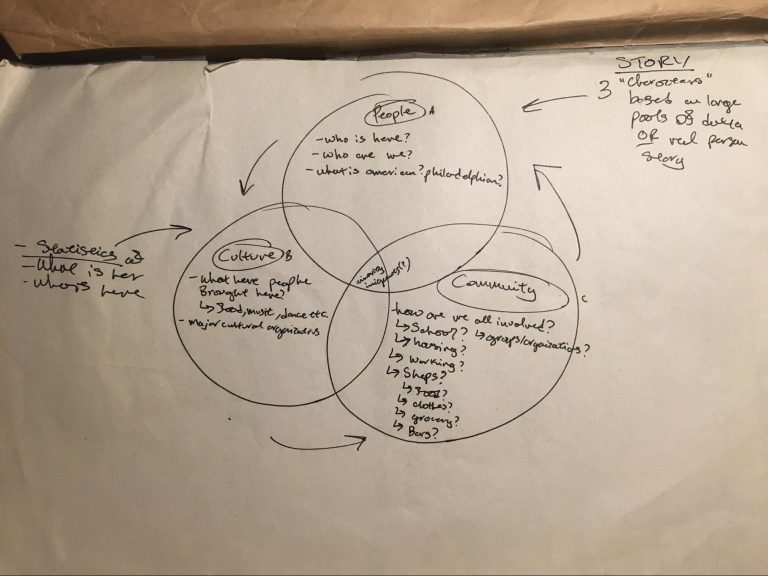 STORY
3 "Characters"
based on large
pools of data
OR real person
story
People A
- who is here?
- who are we?
- what is american? philadelphian?
- Statistics of
- What is her
- who is here
Culture B
- What have people
Brought here?
↳ Food, music, dance etc.
- major cultural organizations
Community C
- how are we all involved?
↳ School? ↳ groups/organizations?
↳ housing?
↳ Working?
↳ Shops?
↳ Food?
↳ clothes?
↳ grocery?
↳ Bars?